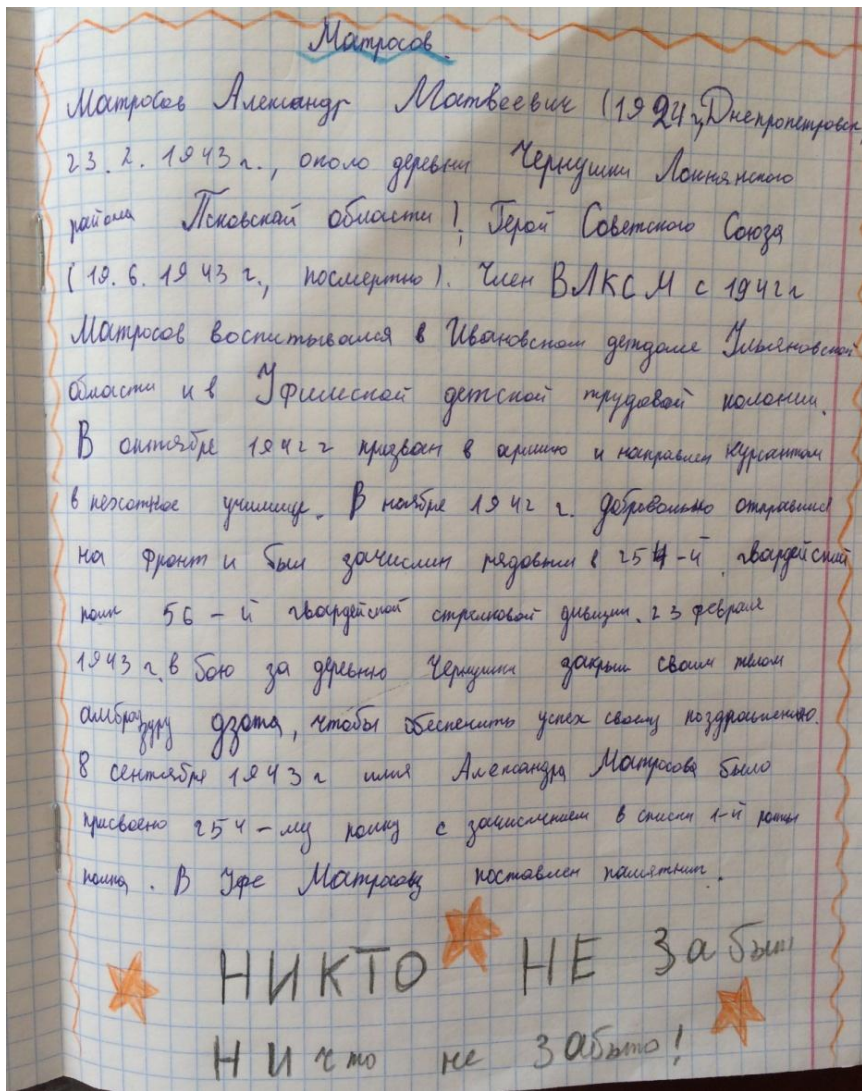 Матросов.
Матросов Александр Матвеевич (1924г, Днепропетровск,
23.2.1943 г., около деревни Чернушки Локнянского
района Псковской области), Герой Советского Союза
(19.6.1943 г., посмертно). Член ВЛКСМ с 1942 г
Матросов воспитывался в Ивановском детдоме Ульяновской
области и в Уфимской детской трудовой колонии.
В октябре 1942 г призван в армию и направлен курсантом
в пехотное училище. В ноябре 1942 г. добровольно отправился
на фронт и был зачислин рядовым в 254-й гвардейский
полк 56-й гвардейской стрелковой дивизии. 23 февраля
1943 г. в бою за деревню Чернушки закрыл своим телом
амбразуру дзота, чтобы обеспечить успех своему поздразделению.
8 сентября 1943 г имя Александра Матросова было
присвоено 254-му полку с зачислением в списки 1-й роты
полка. В Уфе Матросову поставлен памятник.
НИКТО НЕ Забыт
НИчто не Забыто!